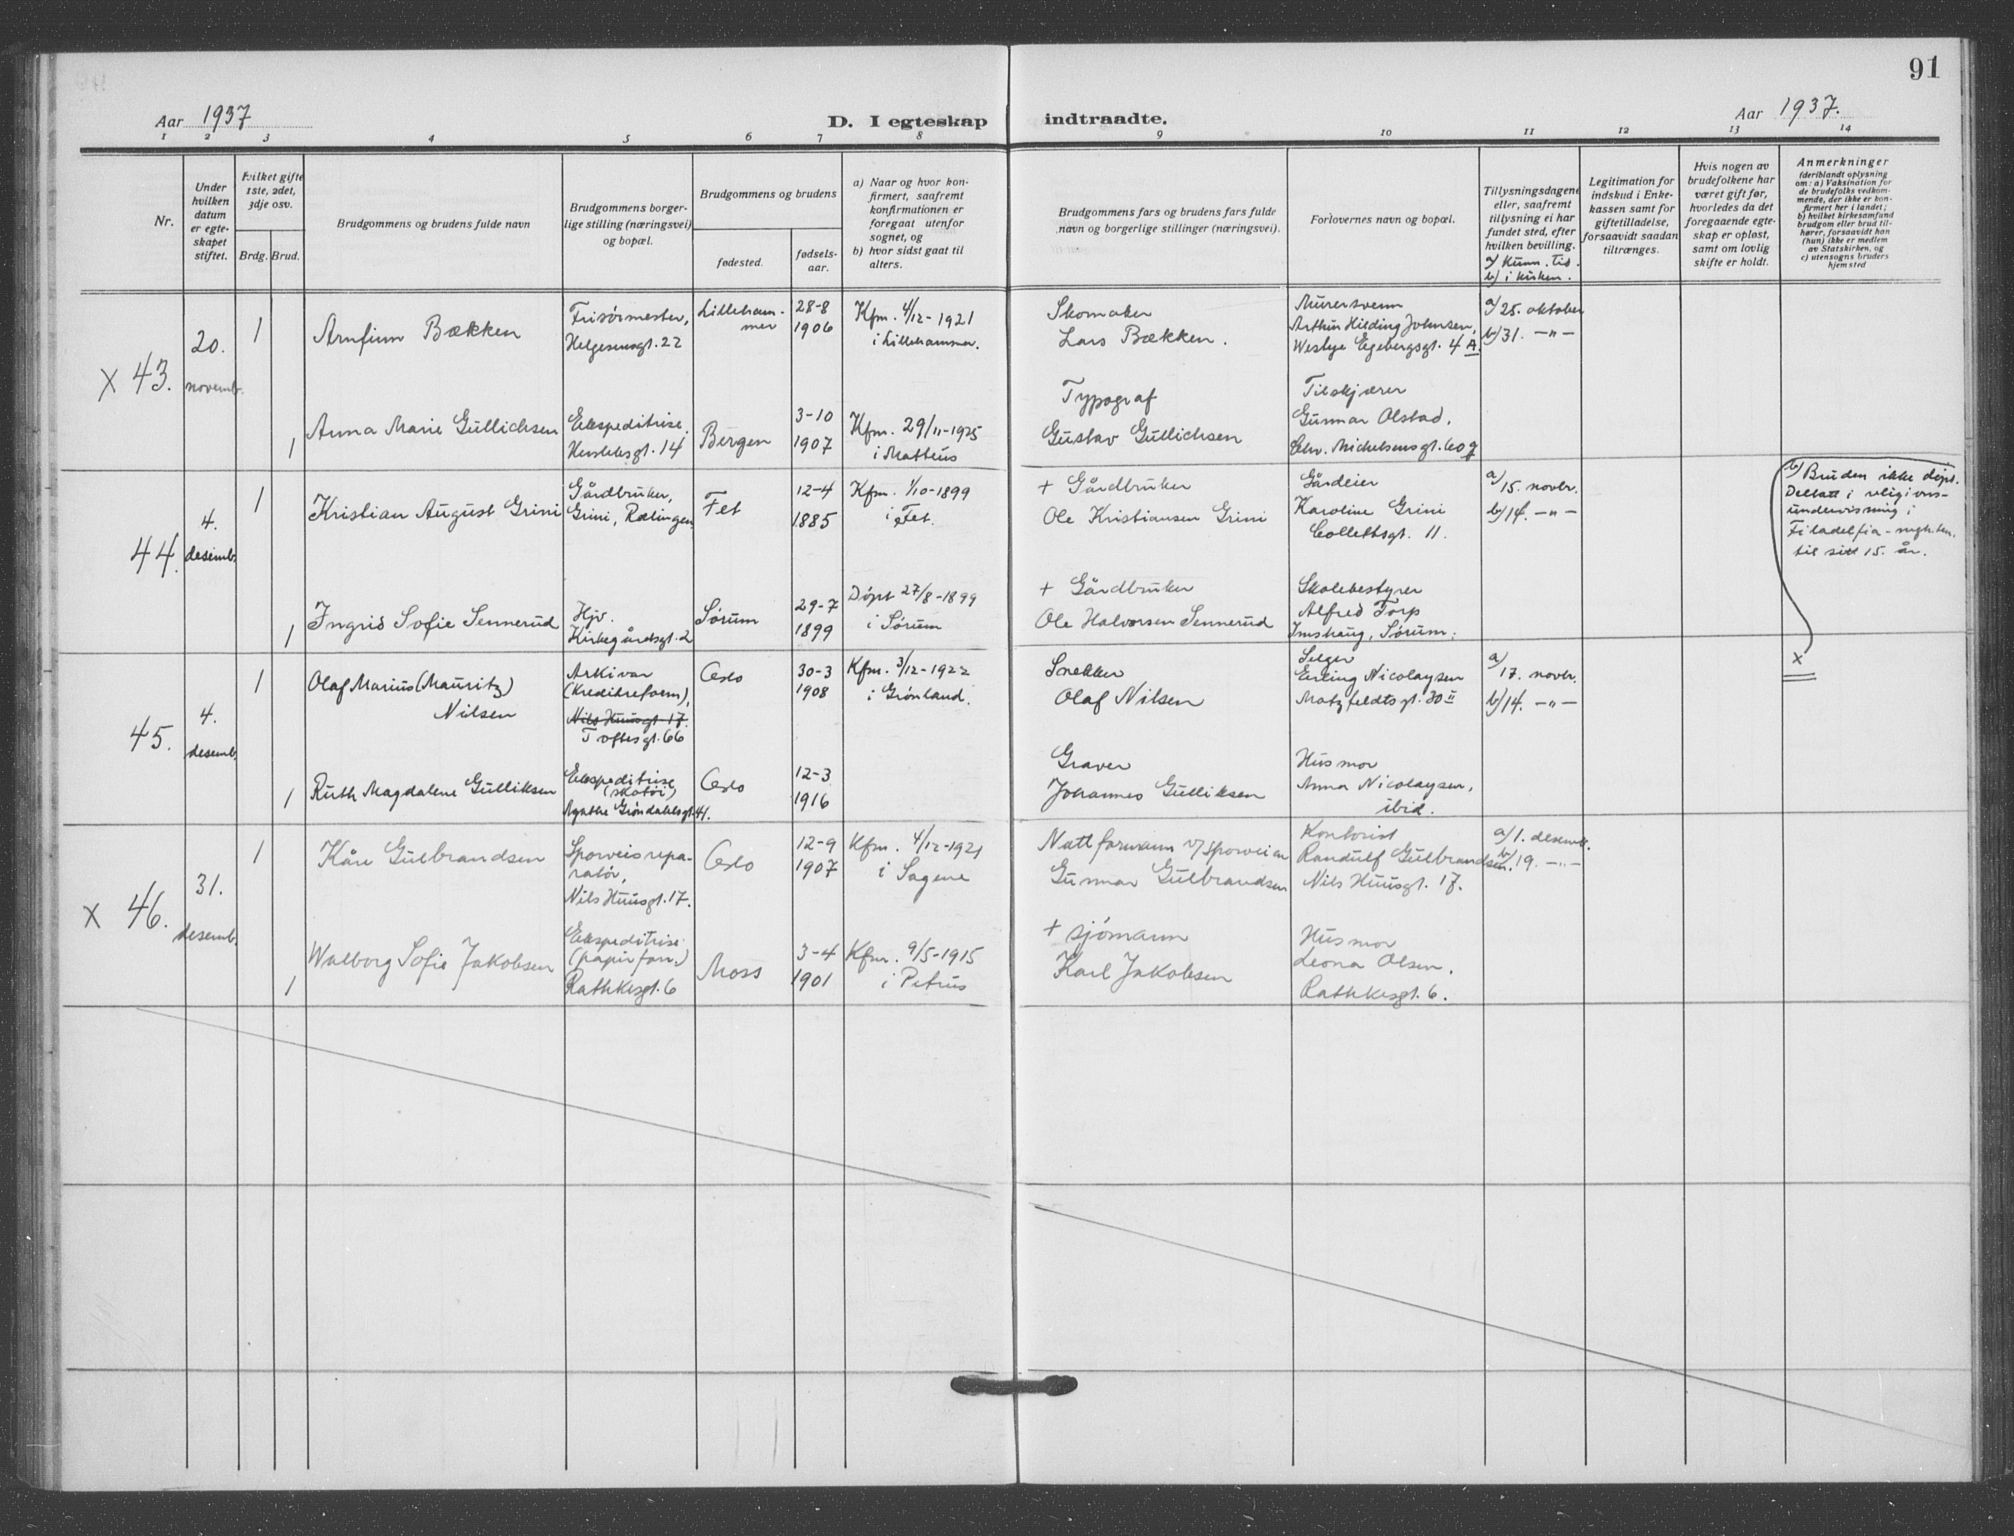 91
Aar 1937
D. I egteskap indtraadte.
Aar 1937.
1 2 3 4 5 6 7 8 9 10 11 12 13 14
Nr.
Under hvilken datum er egteskapet stiftet.
Hvilket gifte 1ste, 2det, 3dje osv.
Brdg. Brud.
Brudgommens og brudens fulde navn
Brudgommens borgerlige stilling (næringsvei) og bopæl.
Brudgommens og brudens
fødested.
fødselsaar.
a) Naar og hvor konfirmert, saafremt konfirmationen er foregaat utenfor sognet, og
b) hvor sidst gaat til alters.
Brudgommens fars og brudens fars fulde navn og borgerlige stillinger (næringsvei).
Forlovernes navn og bopæl.
Tillysningsdagene eller, saafremt tillysning ei har fundet sted, efter hvilken bevilling.
a) Kunn. tid.
b) i kirken.
Legitimation for indskud i Enkekassen samt for giftetilladelse, forsaavidt saadan tiltrænges.
Hvis nogen av brudefolkene har været gift før, hvorledes da det foregaaende egteskap er opløst, samt om lovlig skifte er holdt.
Anmerkninger
(deriblandt oplysning om: a) Vaksination for de brudefolks vedkommende, der ikke er konfirmert her i landet;
b) hvilket kirkesamfund brudgom eller brud tilhører, forsaavidt han (hun) ikke er medlem av Statskirken, og
c) utensogns bruders hjemsted
x 43.
20. novemb.
1
Arnfinn Bækken
Frisørmester,
Helgesensgt. 22
Lillehammer
28-8
1906
Kfm. 4/12-1921
i Lillehammer.
Skomaker
Lars Bækken.
Murersvenn
Arthur Hilding Johnsen,
Westye Egebergsgt. 4 A.
a/ 25. oktober
b/ 31. -"-
1
Anna Marie Gullichsen
Ekspeditrise,
Herslebsgt. 14
Bergen
3-10
1907
Kfm. 29/11-1925
i Matteus
Typograf
Gustav Gullichsen
Tilskjærer
Gunnar Olstad,
Chr. Michelsensgt. 60 g
44.
4. desemb.
1
Kristian August Grini
Gårdbruker,
Grini, Rælingen
Fet
12-4
1885
Kfm. 1/10-1899
i Fet.
+ Gårdbruker
Ole Kristiansen Grini
Gårdeier
Karoline Grini
Collettsgt. 11.
a/ 15. novbr.
b/ 14. -"-
b/ Bruden ikke døpt.
Deltatt i religions-
undervisning i
Filadelfia-migheten.
til sitt 15. år.
1
Ingrid Sofie Sennerud
Hjv.
Kirkegårdsgt. 2
Sørum
29-7
1899
Døpt 27/8-1899
i Sørum
+ Gårdbruker
Ole Halvorsen Sennerud
Skolebestyrer
Alfred Torp
Imshaug, Sørum.
45.
4. desemb.
1
Olaf Marius (Mauritz)
Nilsen
Arkivar
(Kreditreform),
Nils Huusgt. 17.
Toftesgt. 66
Oslo
30-3
1908
Kfm. 3/12-1922
i Grønland.
Snekker
Olaf Nilsen
Selger
Erling Nicolaysen
Motzfeldtsgt. 30 II
a/ 17. novbr.
b/ 14. -"-
x
1
Ruth Magdalene Gulliksen
Ekspeditrise
(skotøi)
Agathe Grøndahlsgt. 41.
Oslo
12-3
1916
Graver
Johannes Gulliksen
Husmor
Anna Nicolaysen,
ibid.
x 46.
31. desemb.
1
Kåre Gulbrandsen
Sporveisrepa-
ratør,
Nils Huusgt. 17.
Oslo
12-9
1907
Kfm. 4/12-1921
i Sagene
Nattformann v/ Sporveien
Gunnar Gulbrandsen
Kontorist
Randulf Gulbrandsen.
Nils Huusgt. 17.
a/ 1. desemb.
b/ 19. -"-
1
Walborg Sofie Jakobsen
Ekspeditrise
(papirforr.)
Rathkesgt. 6
Moss
3-4
1901
Kfm. 9/5-1915
i Petrus
+ sjømann
Karl Jakobsen
Husmor
Leona Olsen,
Rathkesgt. 6.